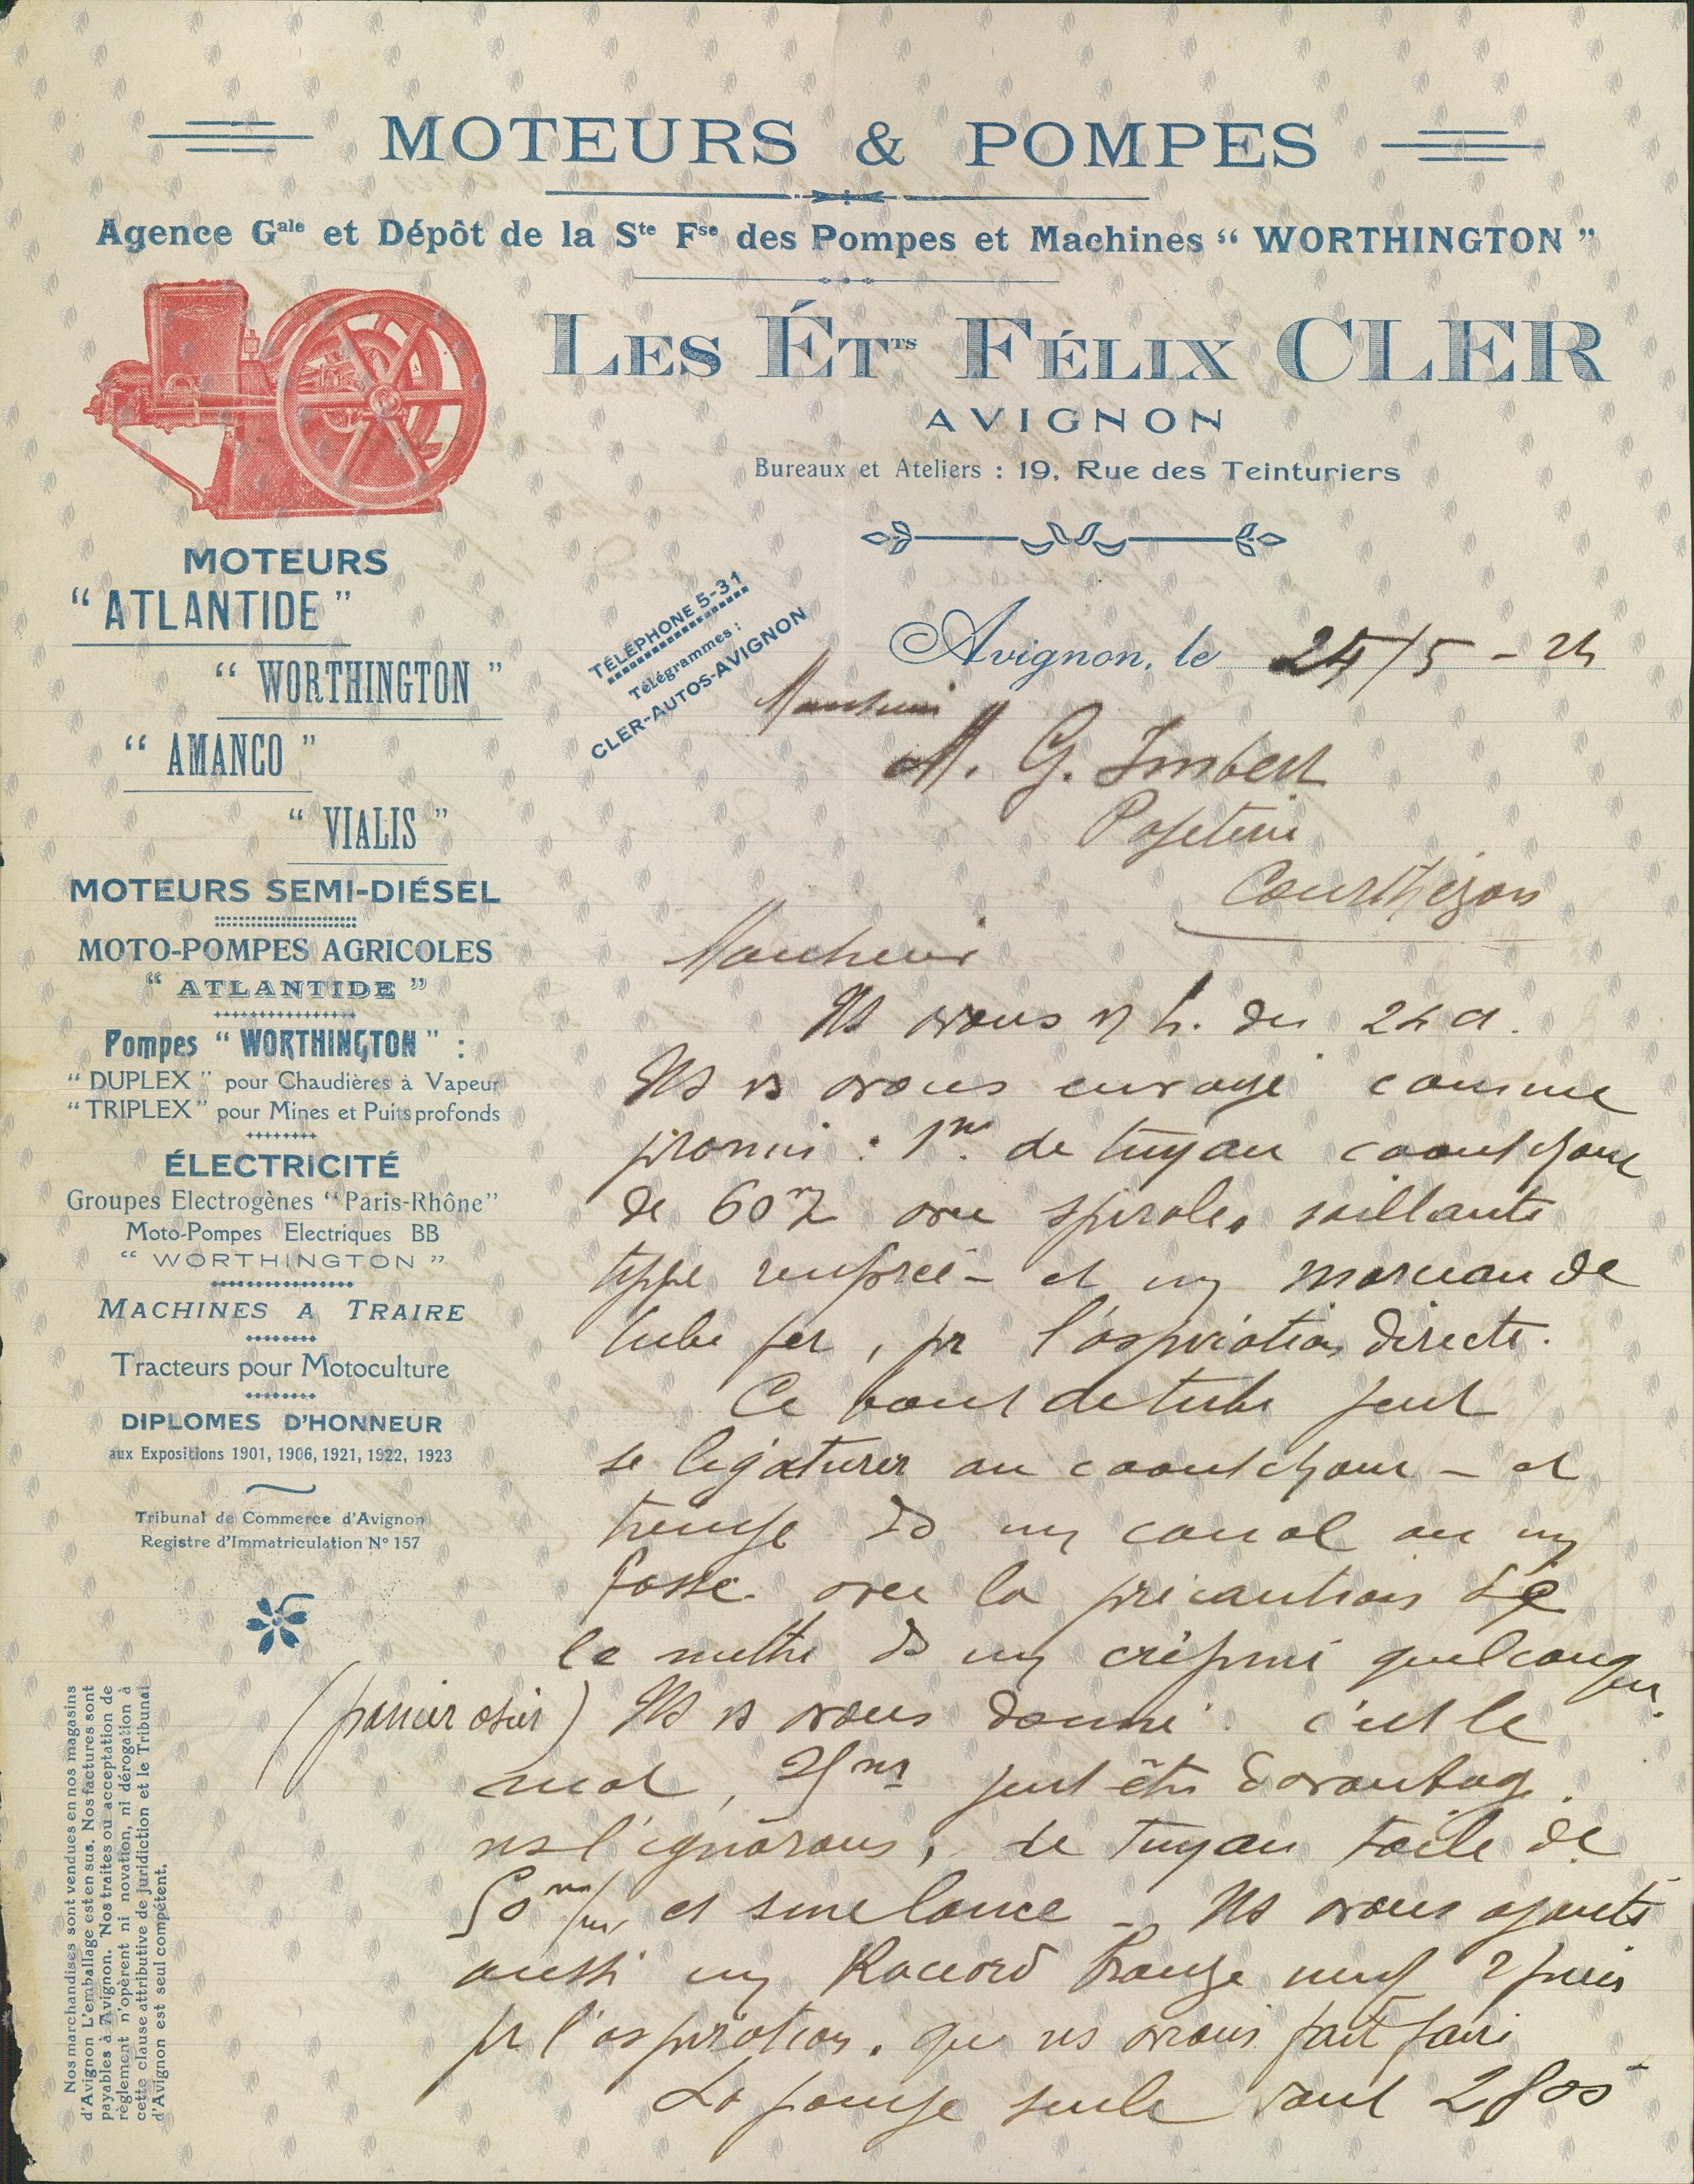 MOTEURS & POMPES
Agence Gale et Dépôt de la Ste Fse des Pompes et Machines “ WORTHINGTON ”
LES ÉTTS FÉLIX CLER
AVIGNON
Bureaux et Ateliers : 19, Rue des Teinturiers
MOTEURS
“ ATLANTIDE ”
“ WORTHINGTON ”
“ AMANCO ”
“ VIALIS ”
MOTEURS SEMI-DIÉSEL
MOTO-POMPES AGRICOLES
“ ATLANTIDE ”
Pompes “ WORTHINGTON ” :
“ DUPLEX ” pour Chaudières à Vapeur
“ TRIPLEX ” pour Mines et Puits profonds
ÉLECTRICITÉ
Groupes Electrogènes “ Paris-Rhône ”
Moto-Pompes Electriques BB
“ WORTHINGTON ”
MACHINES A TRAIRE
Tracteurs pour Motoculture
DIPLOMES D'HONNEUR
aux Expositions 1901, 1906, 1921, 1922, 1923
Tribunal de Commerce d'Avignon
Registre d'Immatriculation N° 157
Nos marchandises sont vendues en nos magasins
d'Avignon L'emballage est en sus. Nos factures sont
payables à Avignon. Nos traites ou acceptation de
règlement n'opèrent ni novation, ni dérogation à
cette clause attributive de juridiction et le Tribunal
d'Avignon est seul compétent.
TÉLÉPHONE 5-31
Télégrammes :
CLER-AUTOS-AVIGNON
Avignon, le 24/5 - 24
Monsieur
M. G. Imbert
Courthézon
Monsieur
Ns avons v L. du 24 ct.
Ns vs avons envoyé comme
promis : 1m. de tuyau caoutchouc
de 60 avec spirales saillante
type renforcé - et un morceau de
tube fer, pr l'aspiration directe.
Ce bout de tube peut
se ligaturer au caoutchouc - et
trempe ds un canal ou un
fosse avec la précaution de
le mettre ds un crépine quelconque
(panier osier) Ns vs avons donné. c'est le
peut être davantage.
ns l'ignorons, de tuyau toile de
50 m/m et une lance - Ns avons ajouté
aussi un Raccord Bronze neuf 2 pièces
pr l'aspiration. que ns avons fait faire
La pompe seule vaut